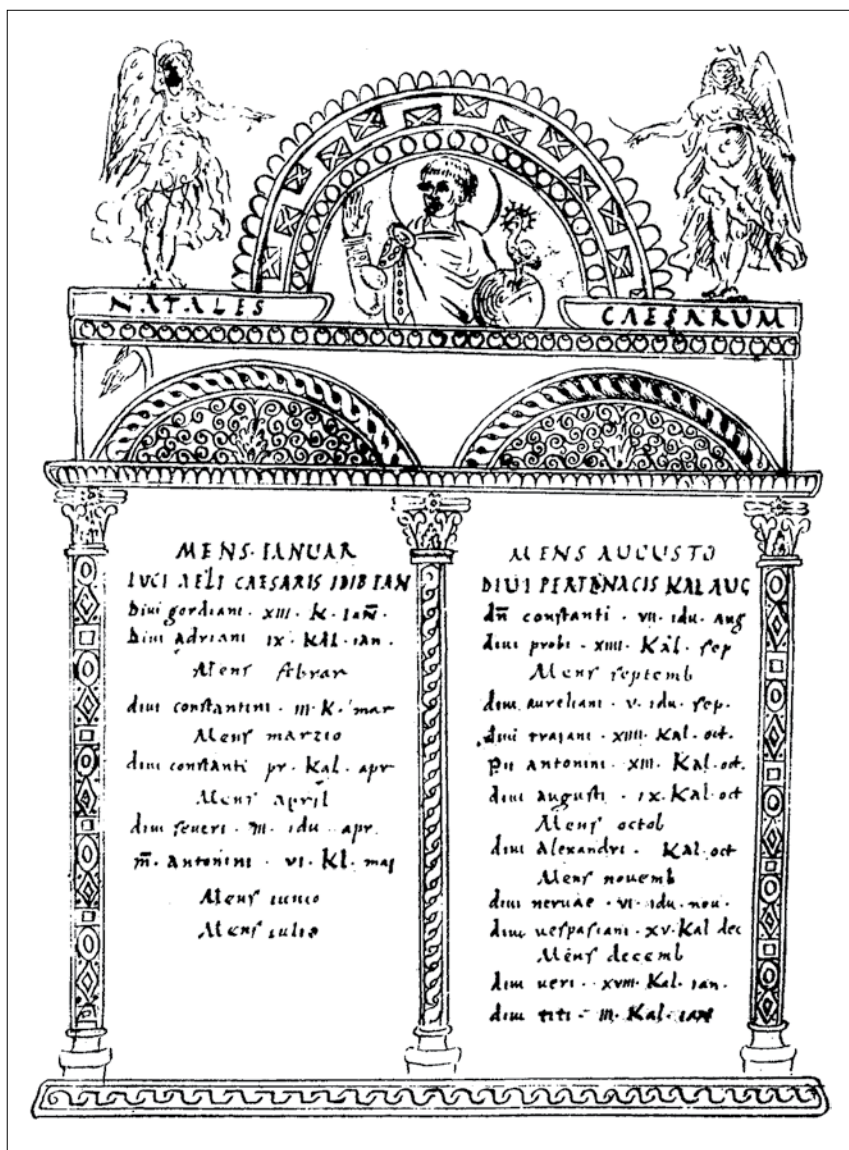 NATALES
CAESARUM
MENS·IANUAR
LUCI AELI CAESARIS IDIB IAN
Diui gordiani · XIII · K · IAN̄ ·
Diui adriani IX · KAL · ian ·
Mens febrar
diui constantini · III · K · mar
Mens marzio
diui constanti pr · Kal · apr
Mens april
diui seueri · III · idu · apr ·
m̄ · antonini · VI · Kl · mai
Mens iunio
Mens iulio
MENS AUGUSTO
DIUI PERTENACIS KAL AUG
dn̄ constanti · VII · idu · aug
diui probi · XIIII · Kal · sep
Mens septemb
diui aureliani · V · idu · sep ·
diui traiani · XIIII · Kal · oct ·
pii antonini · XIII · Kal · oct ·
diui augusti · IX · Kal · oct
Mens octob
diui alexandri · Kal · oct
Mens nouemb
diui neruae · VI · idu · nou ·
diui uespasiani · XV · Kal dec
Mens decemb
diui ueri · XVIII · Kal · ian ·
diui titi · III · Kal · ian